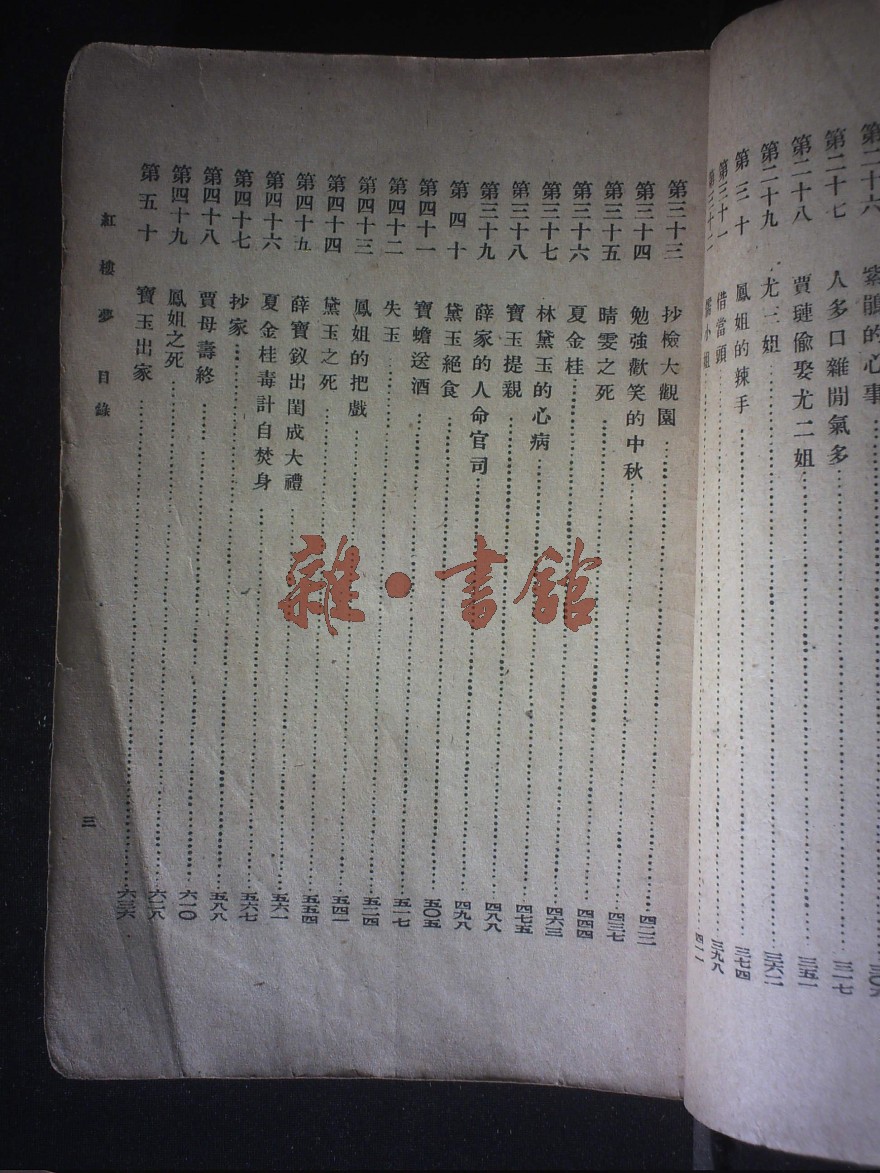 第二十六 紫鵑的心事
第二十七 人多口雜閒氣多 三一七
第二十八 賈璉偸娶尤二姐 三五一
第二十九 尤三姐 三六二
第三十 鳳姐的辣手 三七四
第三十一 借當頭 三九八
第三十二 小姐 四一一
第三十三 抄檢大觀園 四二二
第三十四 勉強歡笑的中秋 四三七
第三十五 晴雯之死 四四四
第三十六 夏金桂 四六三
第三十七 林黛玉的心病 四七五
第三十八 寶玉提親 四八八
第三十九 薛家的人命官司 四九八
第四十 黛玉絕食 五〇五
第四十一 寶蟾送酒 五一七
第四十二 失玉 五二四
第四十三 鳳姐的把戲 五四一
第四十四 黛玉之死 五五四
第四十五 薛寶釵出閨成大禮 五六一
第四十六 夏金桂毒計自焚身 五六七
第四十七 抄家 五八八
第四十八 賈母壽終 六一〇
第四十九 鳳姐之死 六二八
第五十 寶玉出家 六三六
紅樓夢 目錄 三
雜·書館